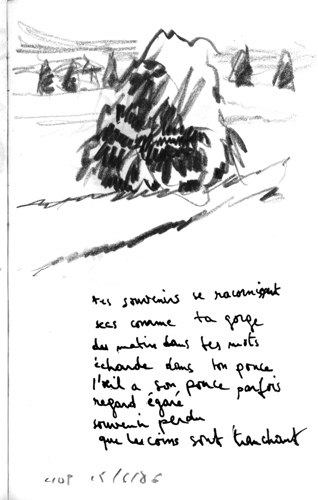 tes souvenirs se racornissent
secs comme ta gorge
des matins dans tes mots
écharde dans ton pouce
l'œil a son pouce parfois
regard égaré
souvenir perdu
que les coins sont tranchant